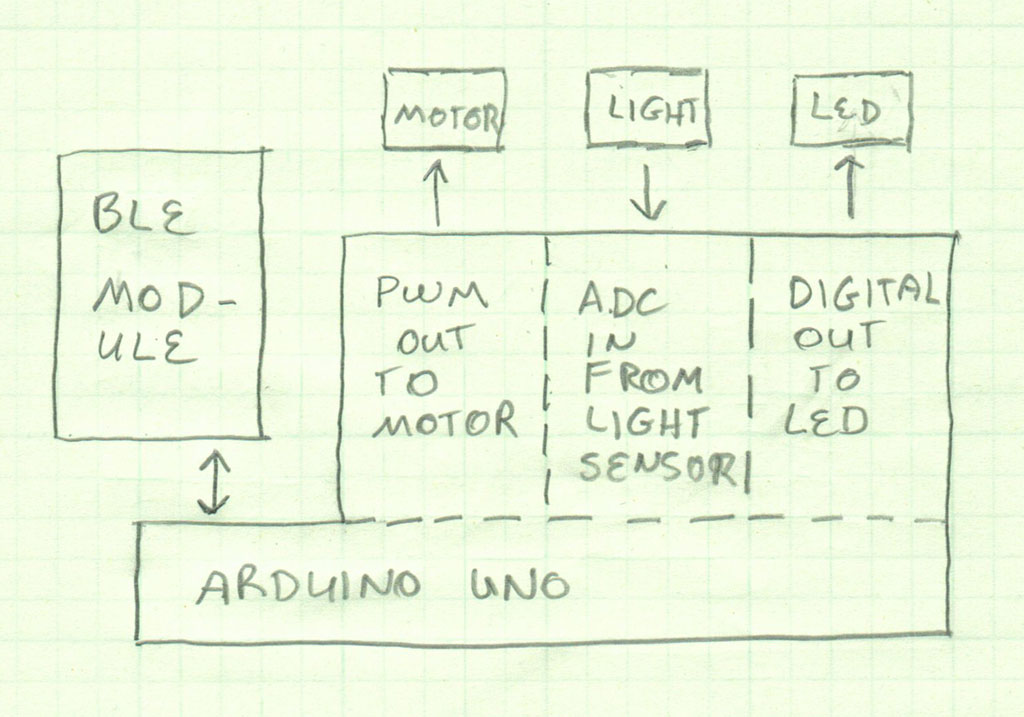 MOTOR
LIGHT
LED
BLE
MOD-
ULE
PWM
OUT
TO
MOTOR
ADC
IN
FROM
LIGHT
SENSOR
DIGITAL
OUT
TO
LED
ARDUINO UNO